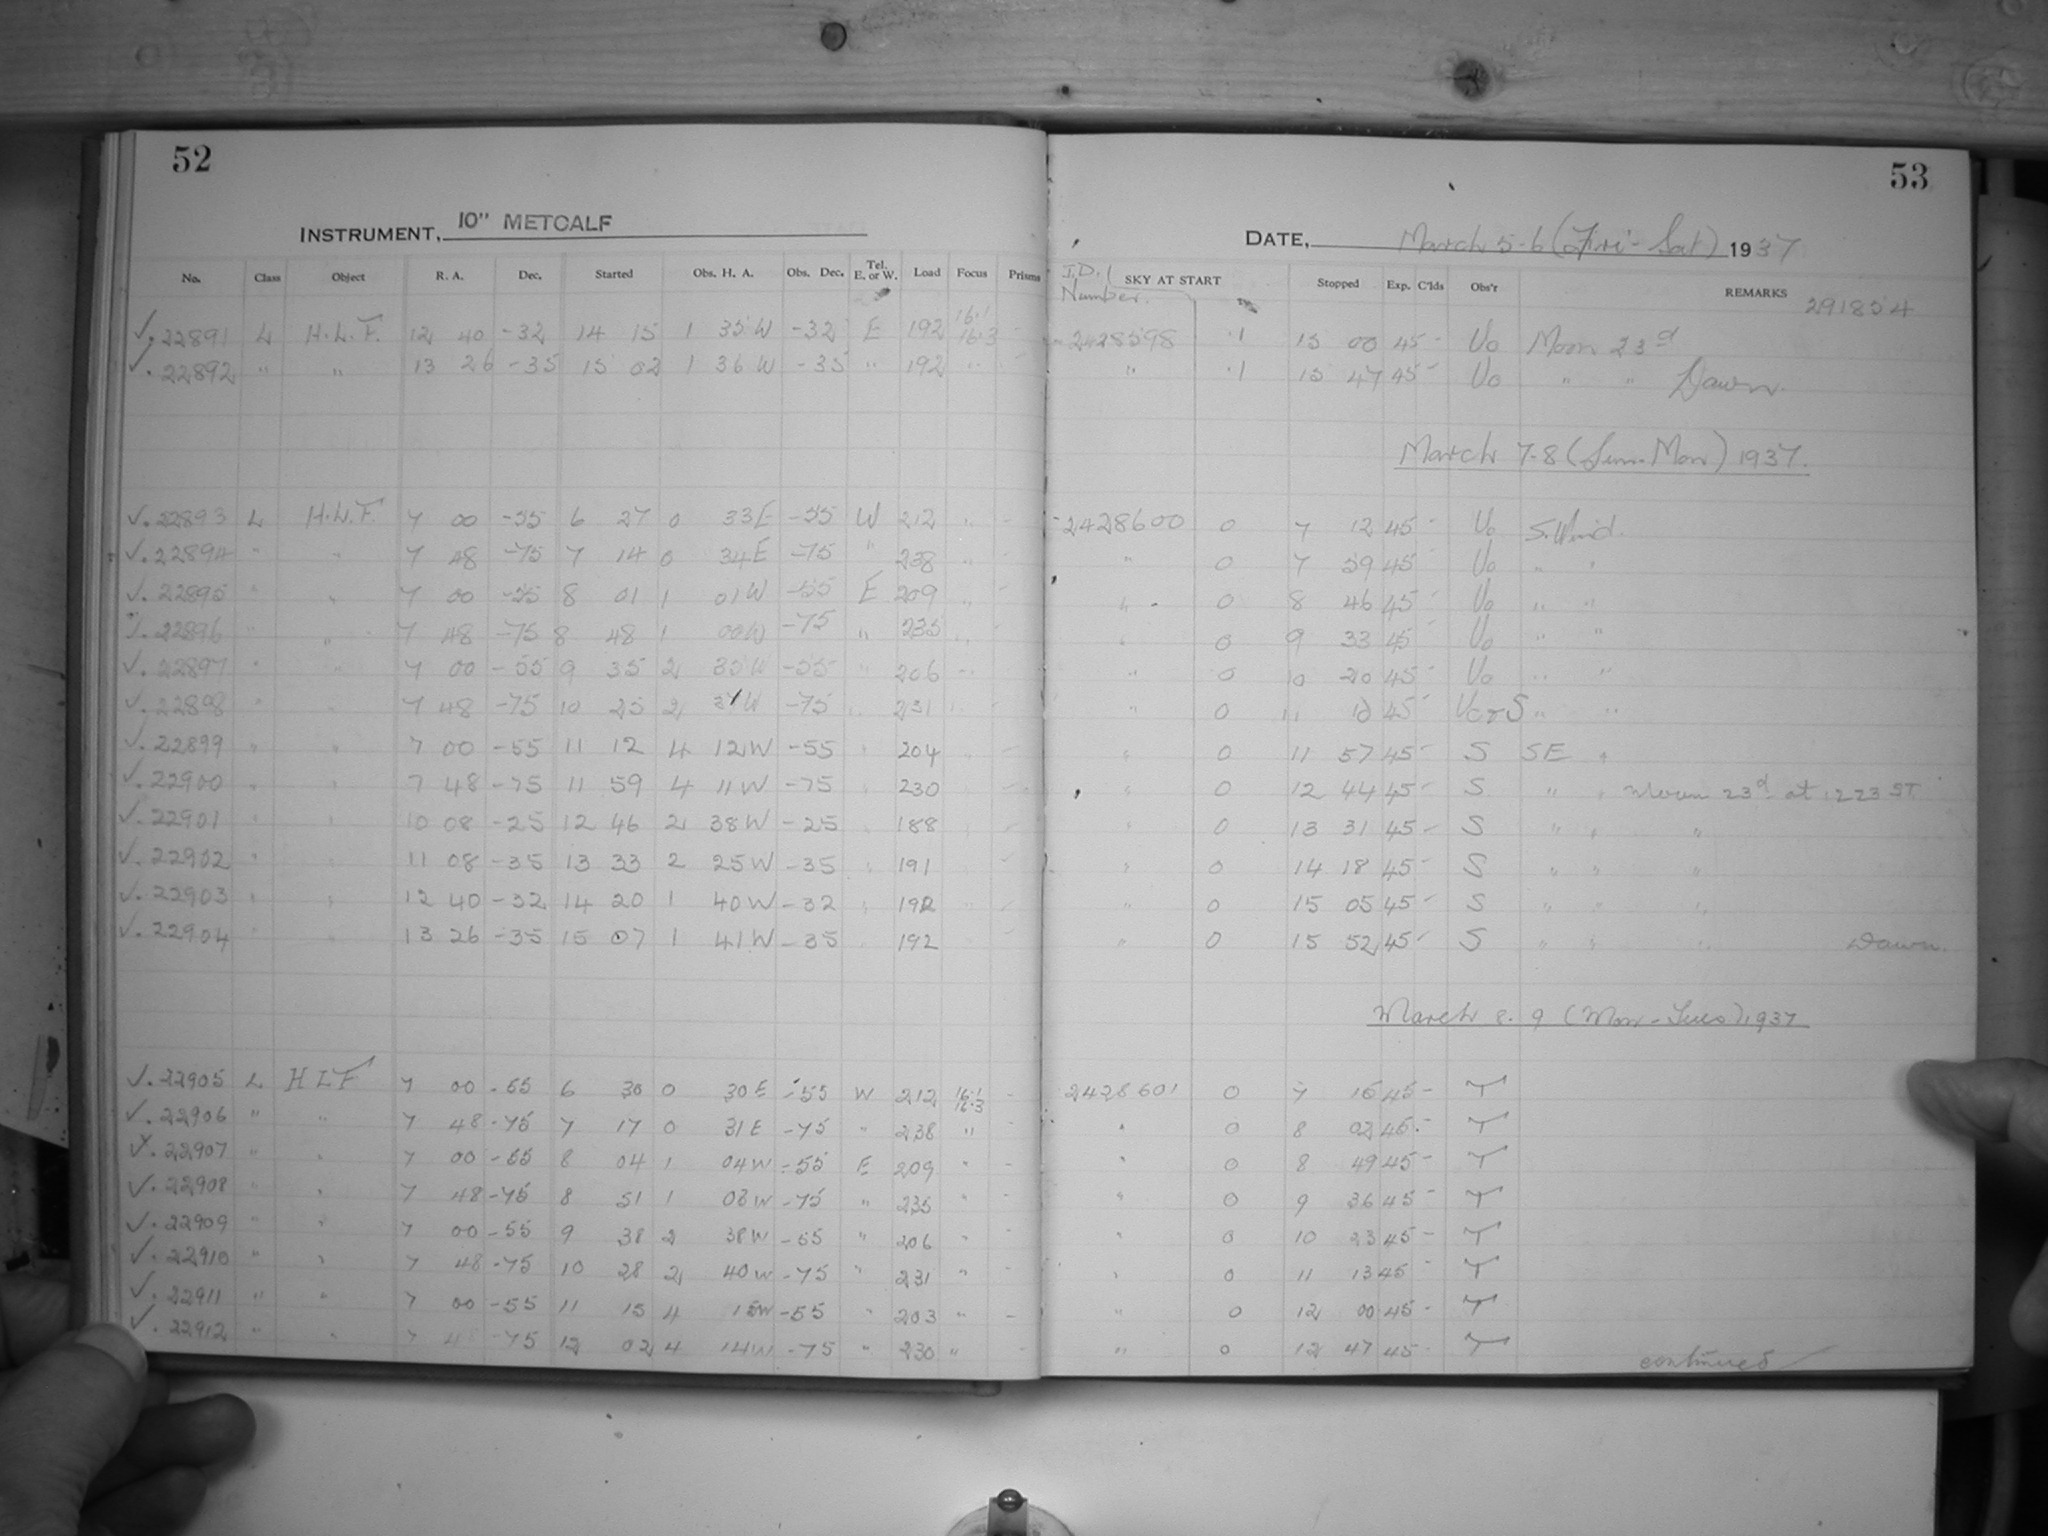 52
53
INSTRUMENT, 10" METCALF
DATE, March 5-6 (Fri - Sat) 1937
No. Class Object R. A. Dec. Started Obs. H. A. Obs. Dec. Tel. E. or W. Load Focus Prisms I.D. Number. SKY AT START Stopped Exp. C'lds Obs'r REMARKS 291854
✓. 22891 L H.L.F. 12 40 -32 14 15 1 35 W -32 E 192 16.1 16.3 - 2428598 .1 15 00 45 - Uo Moon 23d
✓. 22892 " " 13 26 -35 15 02 1 36 W -35 " 192 " " .1 15 47 45 - Uo " " Dawn.
March 7-8 (Sun-Mon) 1937.
✓. 22893 L H.L.F. 7 00 -55 6 27 0 33 E -55 W 212 " - 2428600 0 7 12 45 - Uo S. Wind.
✓. 22894 " " 7 48 -75 7 14 0 34 E -75 " 238 " - " 0 7 59 45 Uo " "
✓. 22895 " " 7 00 -55 8 01 1 01 W -55 E 209 " - " 0 8 46 45 Uo " "
✓. 22896 " " 7 48 -75 8 48 1 00 W -75 " 235 " " 0 9 33 45 Uo " "
✓. 22897 " " 7 00 -55 9 35 2 35 W -55 " 206 " " 0 10 20 45 - Uo " "
✓. 22898 " " 7 48 -75 10 25 2 37 W -75 " 231 " " 0 11 10 45 - Uo & S " "
✓. 22899 " " 7 00 -55 11 12 4 12 W -55 " 204 - " 0 11 57 45 - S SE "
✓. 22900 " " 7 48 -75 11 59 4 11 W -75 " 230 - " 0 12 44 45 - S " " Moon 23d at 1223 ST
✓. 22901 " " 10 08 -25 12 46 2 38 W -25 " 188 - " 0 13 31 45 - S " " "
✓. 22902 " " 11 08 -35 13 33 2 25 W -35 " 191 - " 0 14 18 45 - S " " "
✓. 22903 " " 12 40 -32 14 20 1 40 W -32 " 192 - " 0 15 05 45 - S " " "
✓. 22904 " " 13 26 -35 15 07 1 41 W -35 " 192 - " 0 15 52 45 - S " " " Dawn.
March 8-9 (Mon - Tues) 1937
✓. 22905 L H L F 7 00 -55 6 30 0 30 E -55 W 212 16.1 16.3 - 2428601 0 7 15 45 - T
✓. 22906 " " 7 48 -75 7 17 0 31 E -75 " 238 " - " 0 8 02 45 - T
✓. 22907 " " 7 00 -55 8 04 1 04 W -55 E 209 " - " 0 8 49 45 - T
✓. 22908 " " 7 48 -75 8 51 1 03 W -75 " 235 " - " 0 9 36 45 - T
✓. 22909 " " 7 00 -55 9 38 2 38 W -55 " 206 " - " 0 10 23 45 - T
✓. 22910 " " 7 48 -75 10 28 2 40 W -75 " 231 " - " 0 11 13 45 T
✓. 22911 " " 7 00 -55 11 15 4 15 W -55 " 203 " - " 0 12 00 45 - T
✓. 22912 " " 7 48 -75 12 02 4 14 W -75 " 230 " - " 0 12 47 45 - T
continued